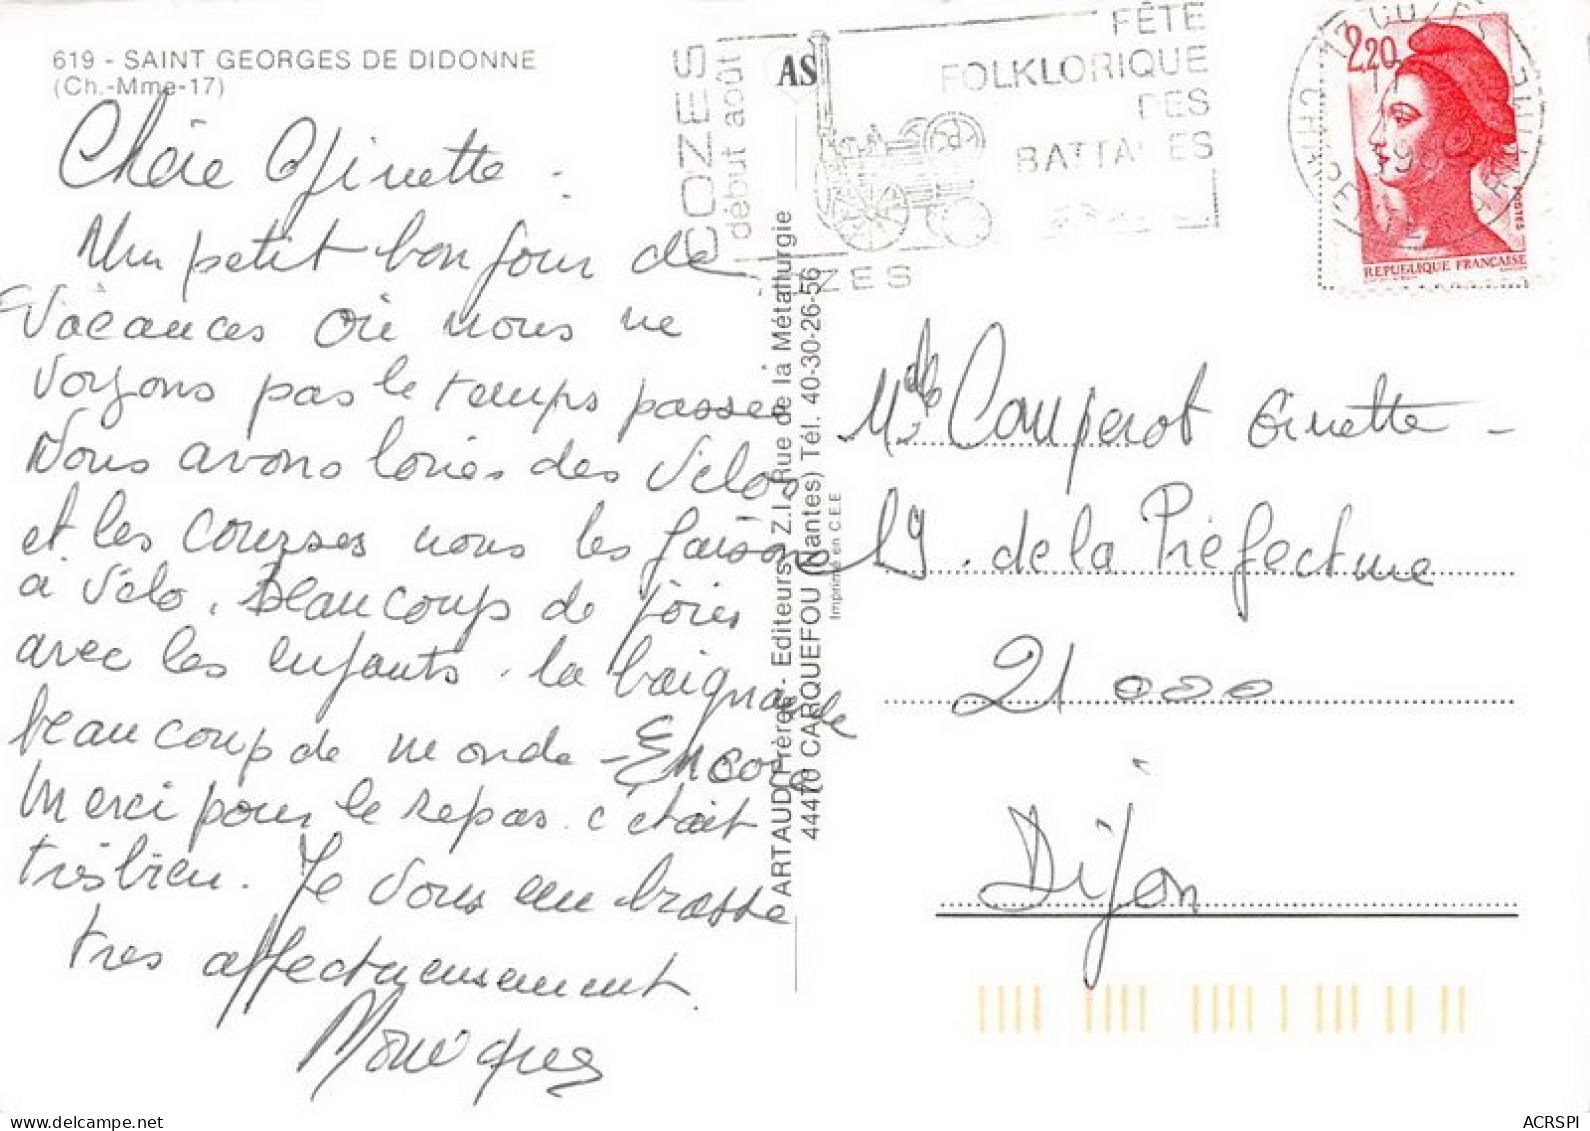 619 - SAINT GEORGES DE DIDONNE
(Ch.-Mme-17)
Chère Ginette
Un petit bonjour de
Vacances où nous ne
Voyons pas le temps passer
Nous avons loués des Vélos
et les courses nous les faisons
à Vélo. Beaucoup de joies
avec les enfants. la baignade
beaucoup de monde - Encore
Merci pour le repas. c'était
très bien. Je vous embrasse
très affectueusement.
Monique
COZES
début août
AS
FÊTE
FOLKLORIQUE
DES
BATTAGES
2,20
POSTES
REPUBLIQUE FRANÇAISE
ARTAUD Frères - Editeurs - Z.I. Rue de la Métallurgie
44470 CARQUEFOU (Nantes) Tél. 40-30-26-56
Imprimé en C.E.E
Mlle Couperot Ginette -
de la Préfecture
21 000
Dijon
ACRSPI